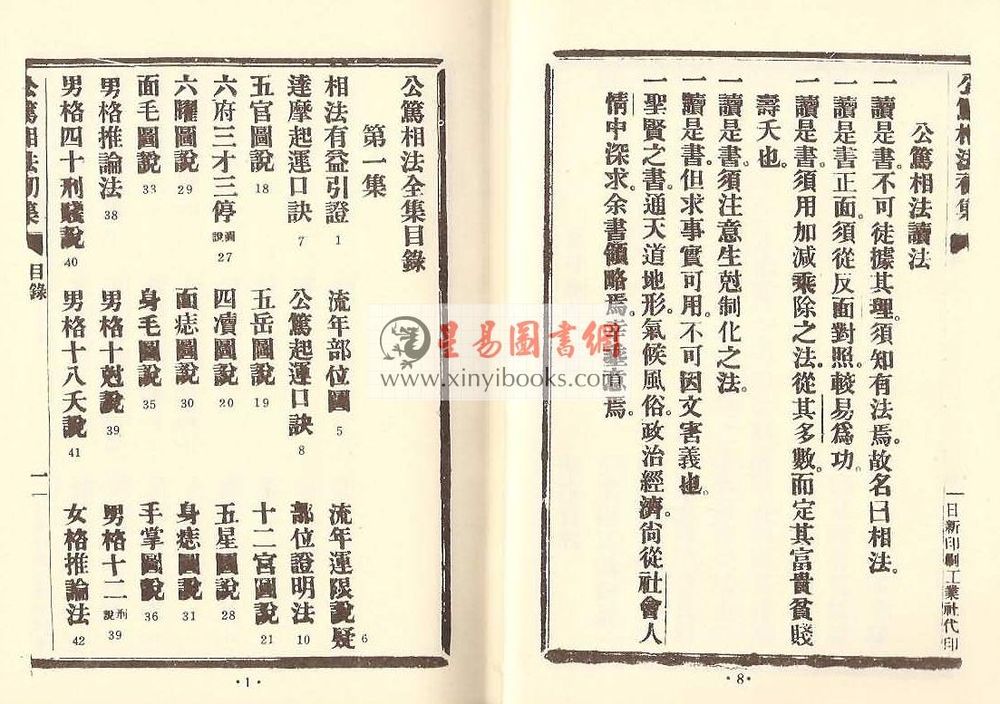 公篤相法集
日新印刷工業社代印
公篤相法讀法
一讀是書。不可徒據其理。須知有法焉。故名曰相法。
一讀是書正面。須從反面對照。較易爲功。
一讀是書。須用加減乘除之法。從其多數。而定其富貴貧賤
壽夭也。
一讀是書。須注意生尅制化之法。
一讀是書。但求事實可用。不可因文害義也。
一聖賢之書。通天道地形。氣候風俗。政治經濟。尙從社會人
情中深求。余書領略焉。意焉。
·8·
公篤相法全集目錄
第一集
相法有益引證 1 流年部位圖 5 流年運限說疑 6
達摩起運口訣 7 公篤起運口訣 8 部位證明法 10
五官圖說 18 五岳圖說 19 十二宮圖說 21
六府三才三停圖說 27 四瀆圖說 20 五星圖說 28
六曜圖說 29 面痣圖說 30 身痣圖說 31
面毛圖說 33 身毛圖說 35 手掌圖說 36
男格推論法 38 男格十尅說 39 男格十二刑說 39
男格四十刑說 40 男格十八夭說 41 女格推論法 42
公篤相法初集 目錄 一
·1·
星易圖書網
www.xinyibooks.com